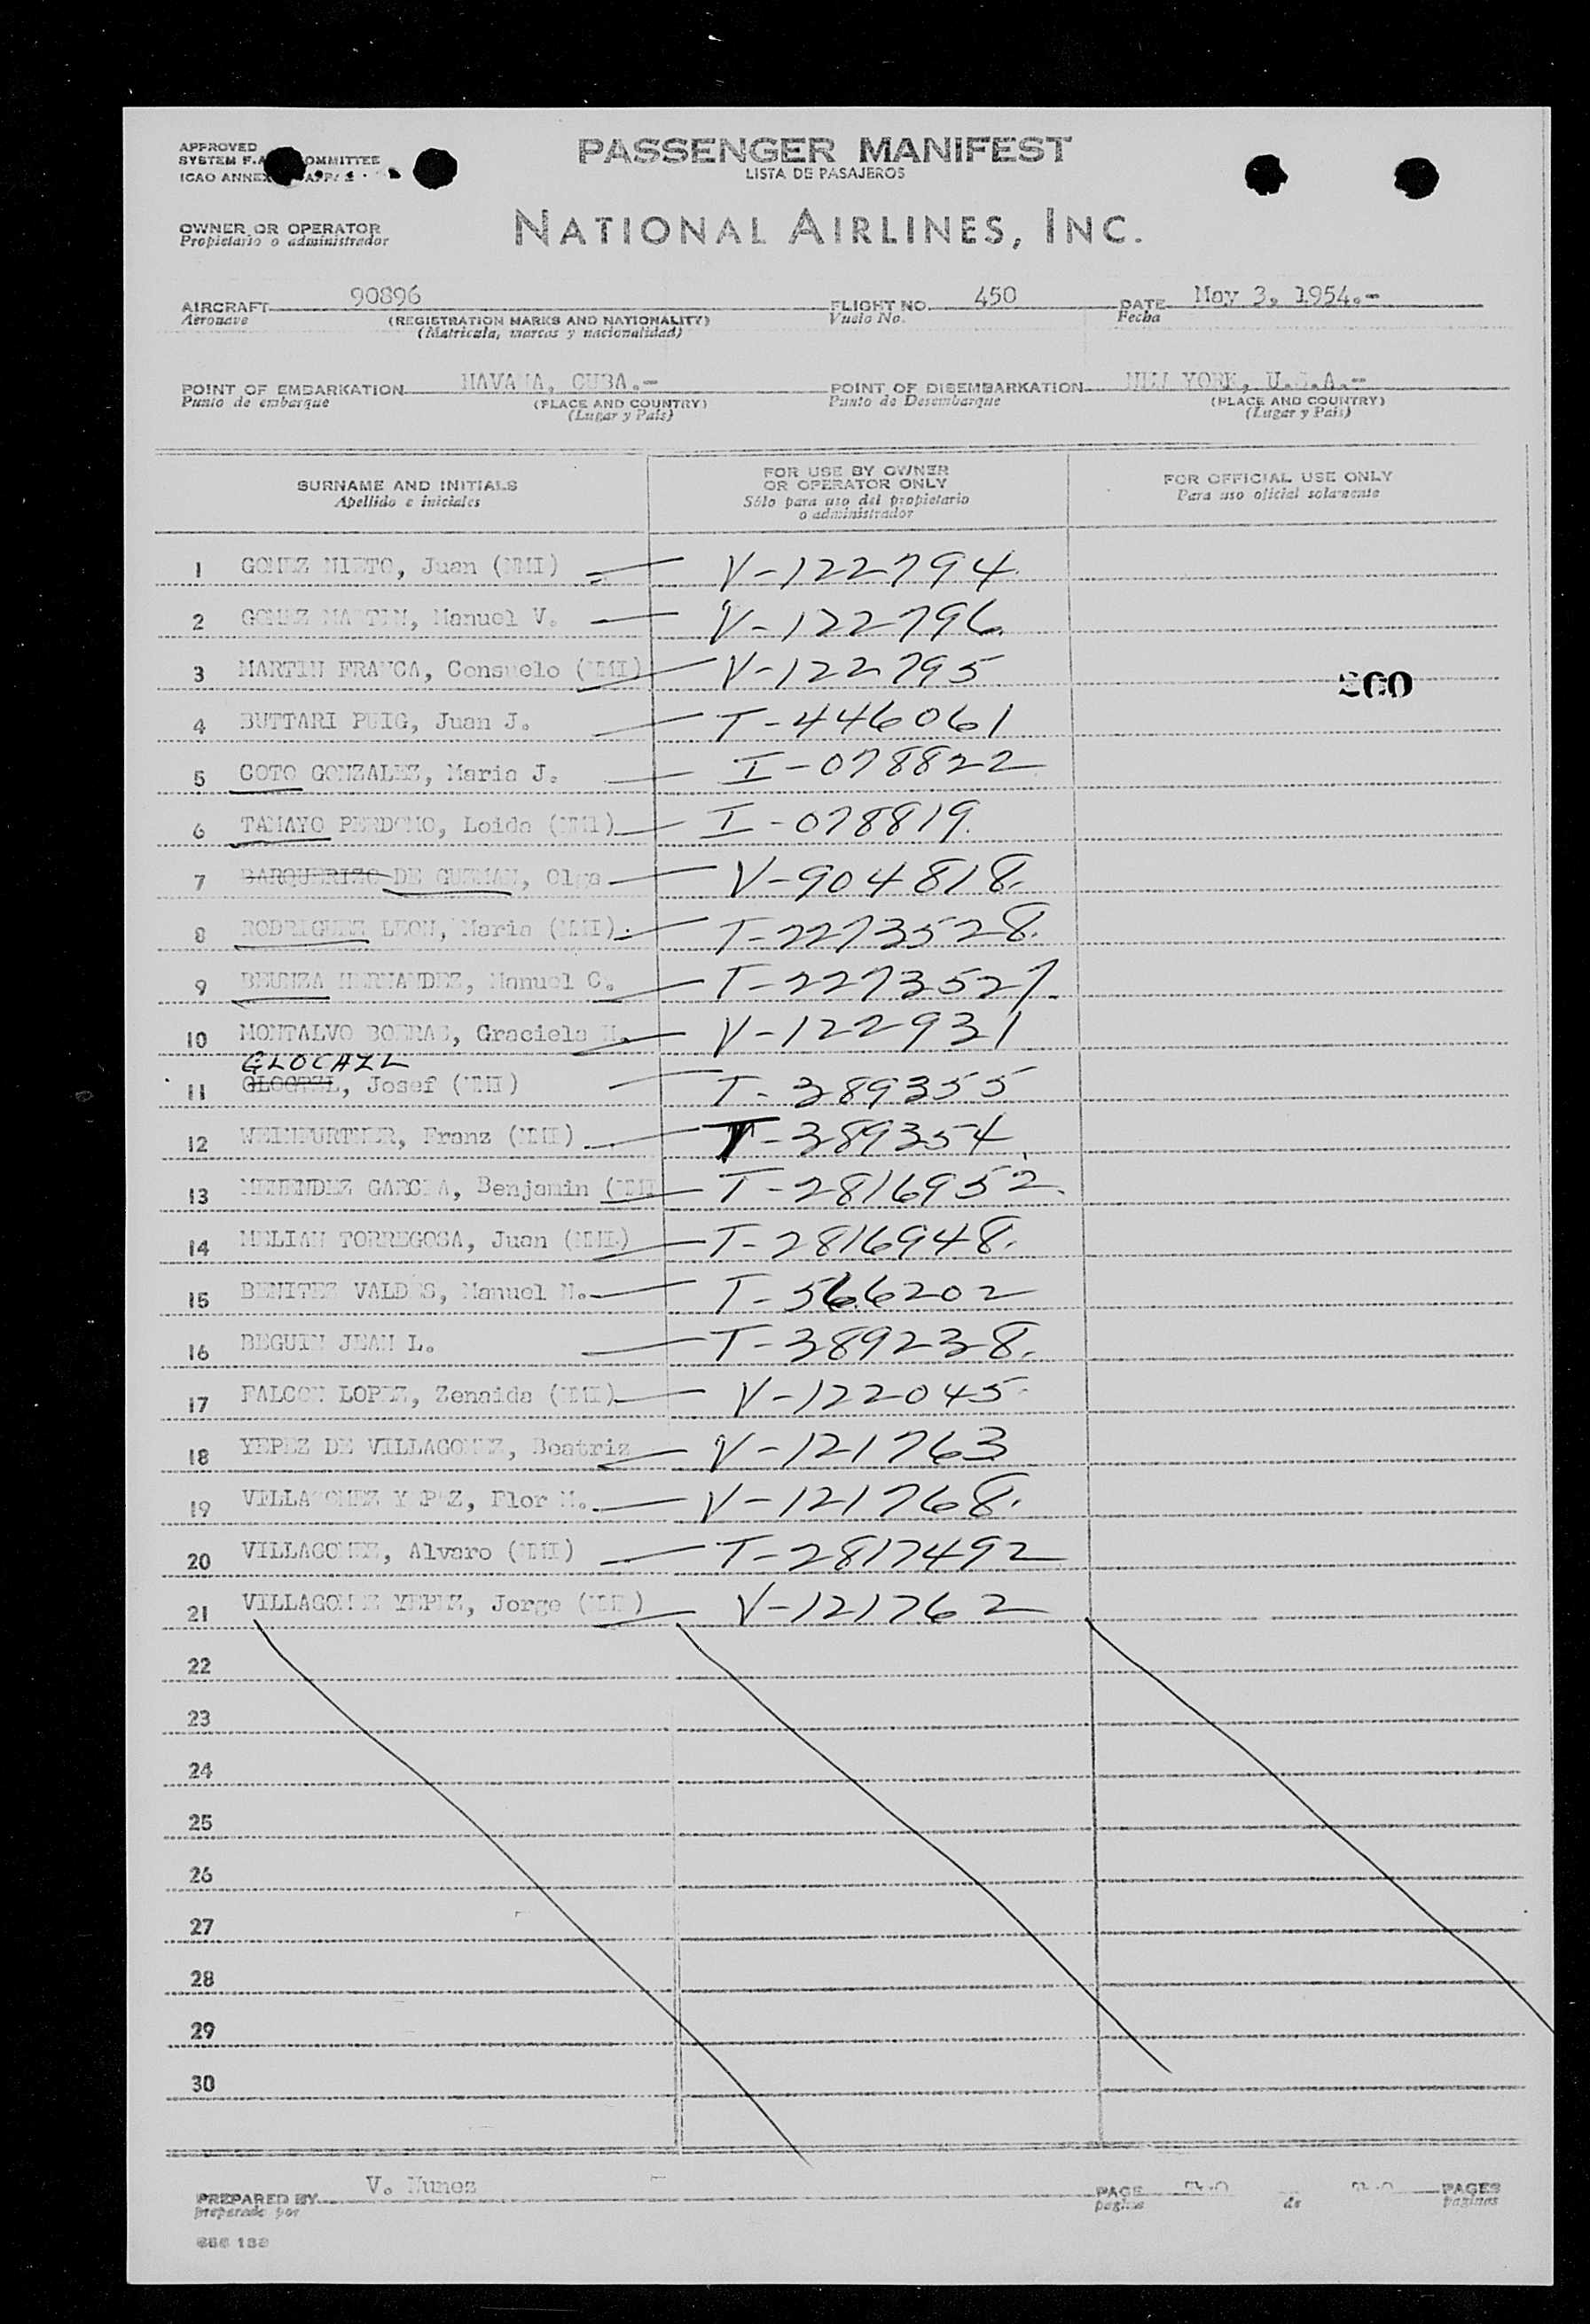 APPROVED
PASSENGER MANIFEST
SYSTEM F.A. COMMITTEE
LISTA DE PASAJEROS
ICAO ANNEX
OWNER OR OPERATOR
Propietario o administrador
NATIONAL AIRLINES, INC.
AIRCRAFT 90896 FLIGHT NO. 450 DATE May 3, 1954.-
Aeronave (REGISTRATION MARKS AND NATIONALITY) Vuelo No. Fecha
(Matricula, marcas y nacionalidad)
POINT OF EMBARKATION HAVANA, CUBA.- POINT OF DISEMBARKATION NEW YORK, U.S.A.-
Punto de embarque (PLACE AND COUNTRY) Punto de Desembarque (PLACE AND COUNTRY)
(Lugar y Pais) (Lugar y Pais)
SURNAME AND INITIALS
Apellido e iniciales
FOR USE BY OWNER
OR OPERATOR ONLY
Sólo para uso del propietario
o administrador
FOR OFFICIAL USE ONLY
Para uso oficial solamente
1 GOMEZ NIETO, Juan (NMI) V-122794
2 GOMEZ MARTIN, Manuel V. V-122796
3 MARTIN FRANCA, Consuelo (NMI) V-122795
4 BUTTARI PUIG, Juan J. T-446061
5 COTO GONZALEZ, Maria J. I-078822
6 TAMAYO PERDOMO, Loida (NMI) I-078819
7 BARQUERIZO DE GUZMAN, Olga V-904818
8 RODRIGUEZ LEON, Maria (NMI) T-2273528
9 BEUNZA HERNANDEZ, Manuel C. T-2273527
10 MONTALVO Graciela V-122931
GLOCAZL
11 Josef (NMI) T-389355
12 WEINFURTNER, Franz (NMI) T-389354
13 MENENDEZ GARCIA, Benjamin (NMI T-2816952
14 MELIAN TORREGOSA, Juan (NMI) T-2816948
15 BENITEZ VALDES, Manuel N. T-566202
16 BEGUIN JEAN L. T-389238
17 FALCON LOPEZ, Zenaida (NMI) V-122045
18 YEPEZ DE VILLAGOMEZ, Beatriz V-121763
19 VILLAGOMEZ YEPEZ, Flor M. V-121768
20 VILLAGOMEZ, Alvaro (NMI) T-2817492
21 VILLAGOMEZ YEPEZ, Jorge (NMI) V-121762
22
23
24
25
26
27
28
29
30
PREPARED BY V. Nunez PAGE PAGES
preparado por pagina de paginas